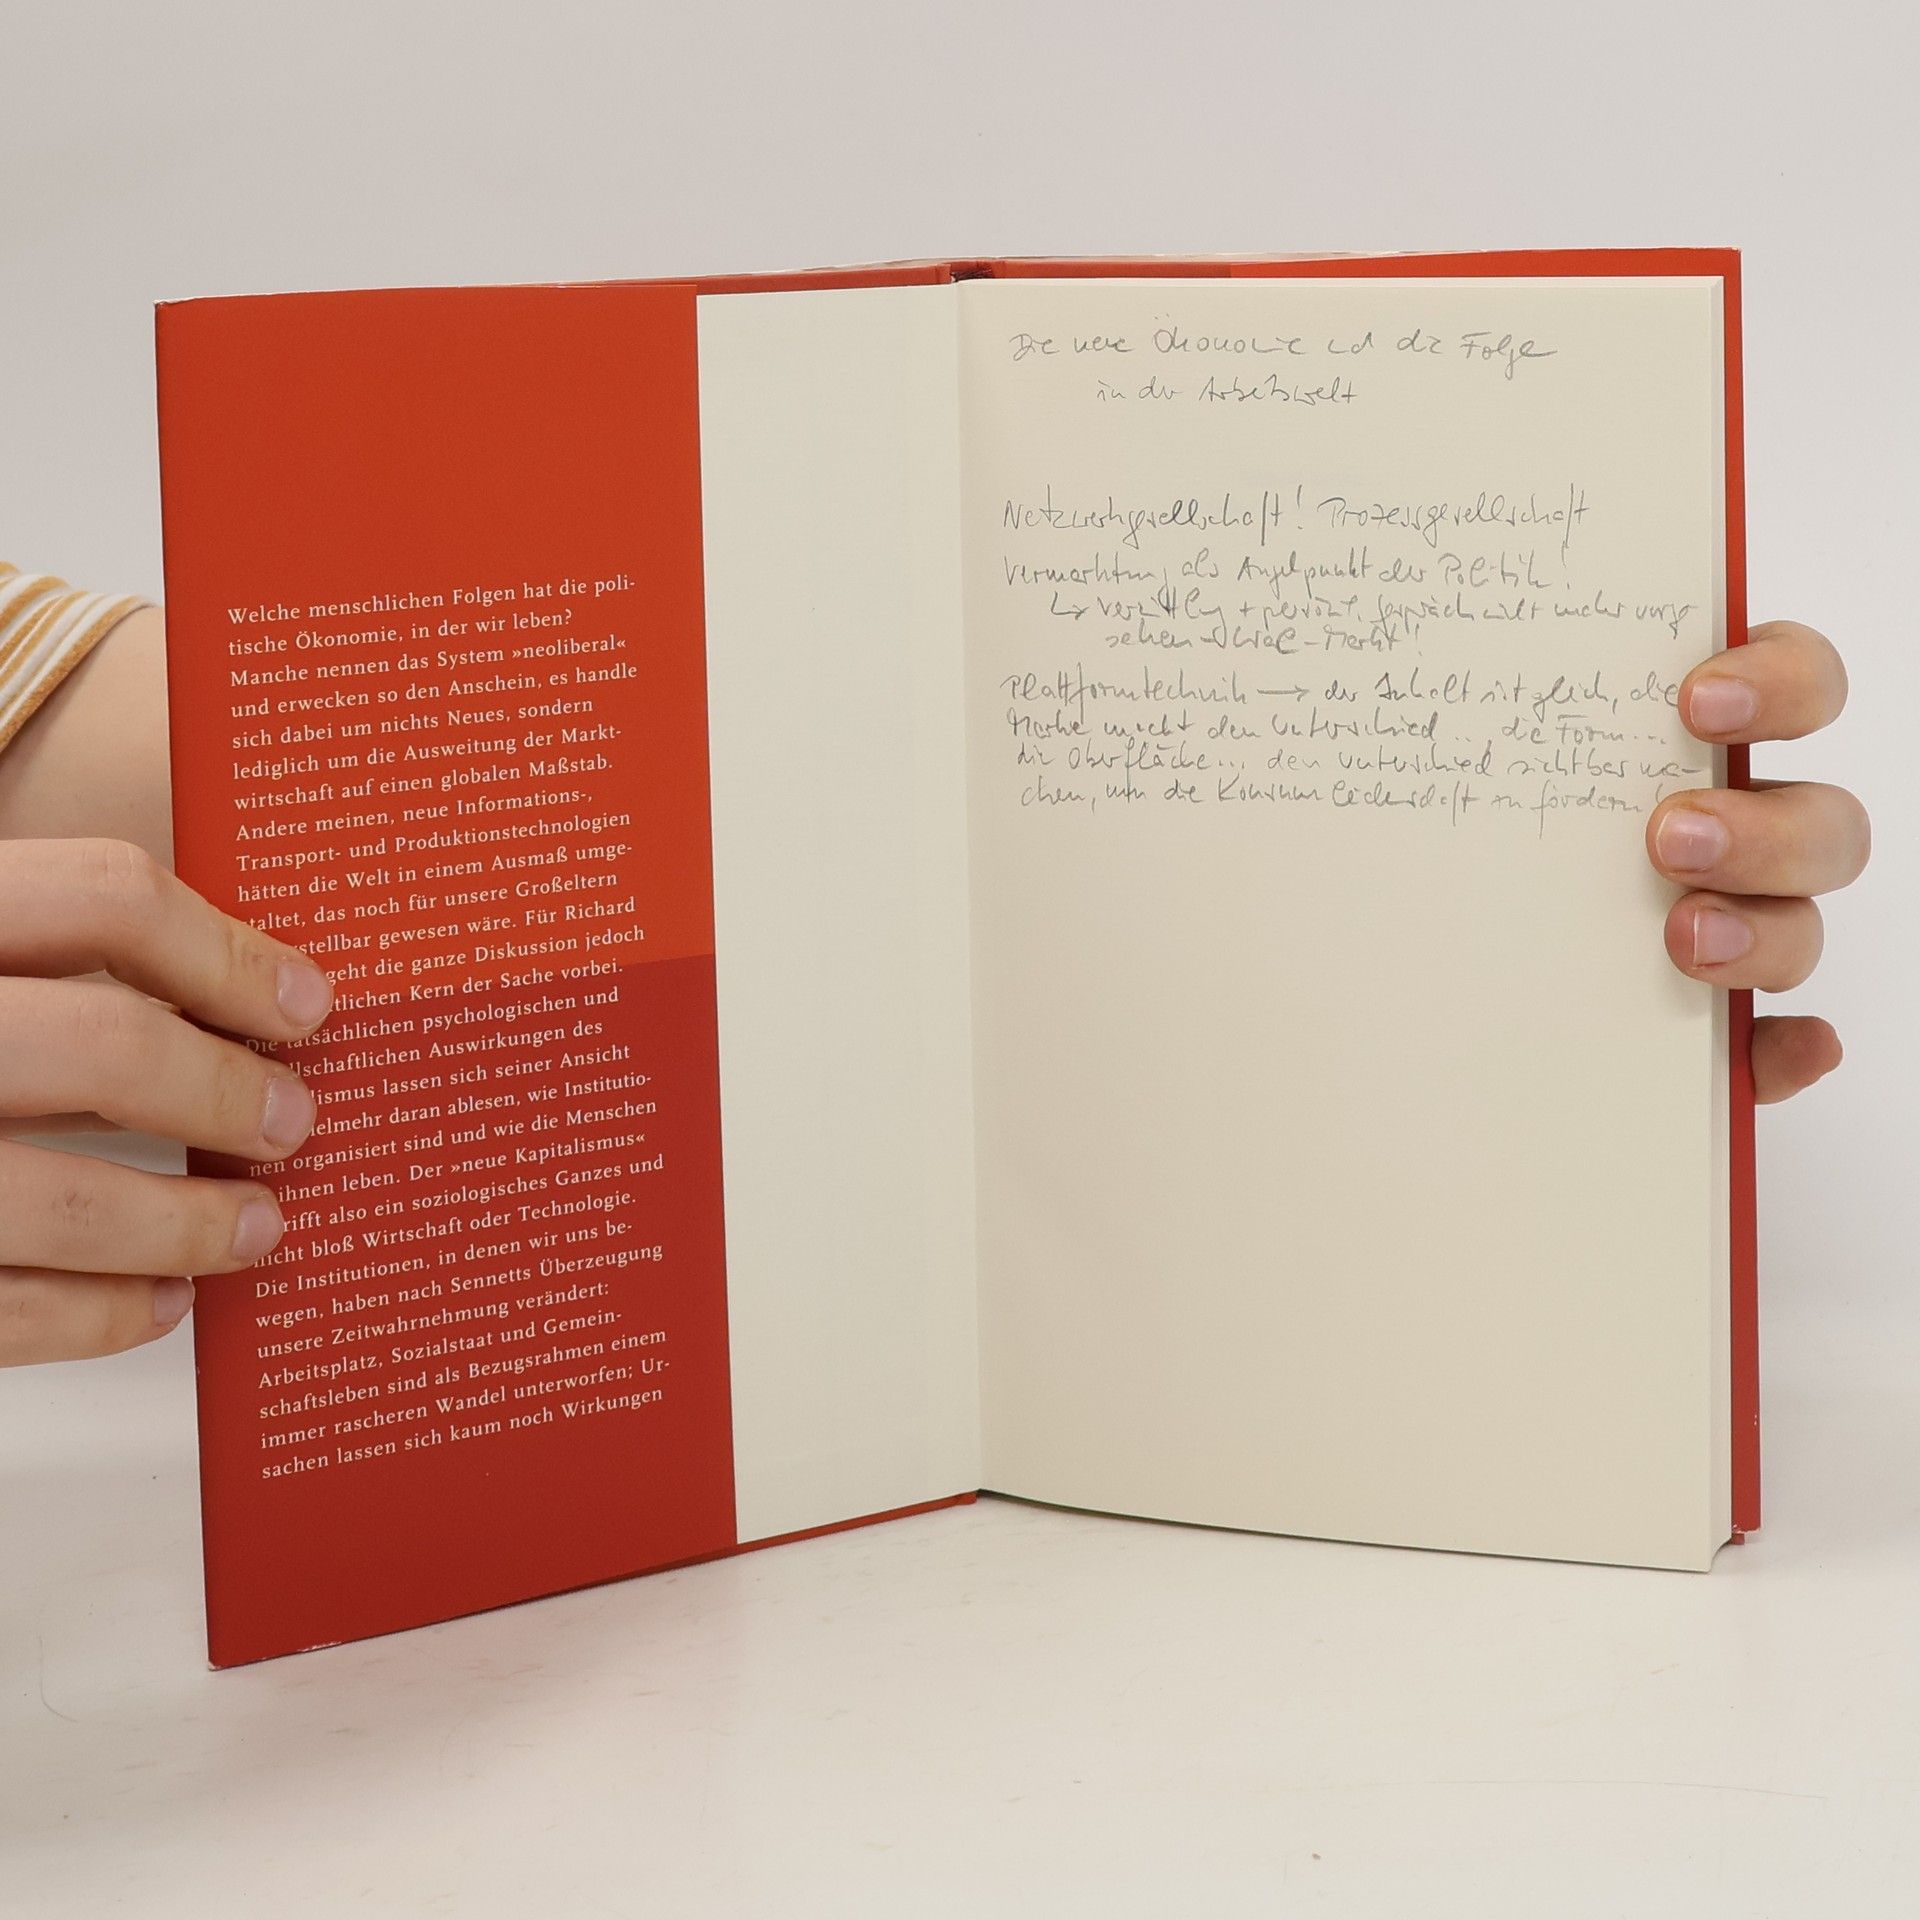 Welche menschlichen Folgen hat die poli-
tische Ökonomie, in der wir leben?
Manche nennen das System »neoliberal«
und erwecken so den Anschein, es handle
sich dabei um nichts Neues, sondern
lediglich um die Ausweitung der Markt-
wirtschaft auf einen globalen Maßstab.
Andere meinen, neue Informations-,
Transport- und Produktionstechnologien
hätten die Welt in einem Ausmaß umge-
taltet, das noch für unsere Großeltern
stellbar gewesen wäre. Für Richard
geht die ganze Diskussion jedoch
tlichen Kern der Sache vorbei.
Die tatsächlichen psychologischen und
llschaftlichen Auswirkungen des
lismus lassen sich seiner Ansicht
ielmehr daran ablesen, wie Institutio-
nen organisiert sind und wie die Menschen
ihnen leben. Der »neue Kapitalismus«
rifft also ein soziologisches Ganzes und
nicht bloß Wirtschaft oder Technologie.
Die Institutionen, in denen wir uns be-
wegen, haben nach Sennetts Überzeugung
unsere Zeitwahrnehmung verändert:
Arbeitsplatz, Sozialstaat und Gemein-
schaftsleben sind als Bezugsrahmen einem
immer rascheren Wandel unterworfen; Ur-
sachen lassen sich kaum noch Wirkungen
Die neue Ökonomie und die Folge
in der Arbeitswelt
Netzwerkgesellschaft! Prozessgesellschaft
Vermarktung als Angelpunkt der Politik!
↳ + persönl. Gespräch nicht mehr vorge
sehen → -Markt!
Plattformtechnik → der Inhalt ist gleich, die
Marke macht den Unterschied .. die Form ...
die Oberfläche ... den Unterschied sichtbar ma-
chen, um die Konsumleidenschaft zu fördern!